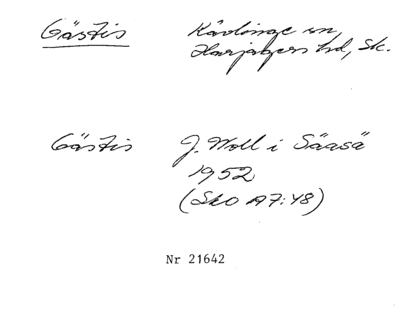 Gästis Kävlinge sn,
Harjagers hd, Sk.
Gästis J. Woll i Säasä
1952
(Sko A7:48)
Nr 21642